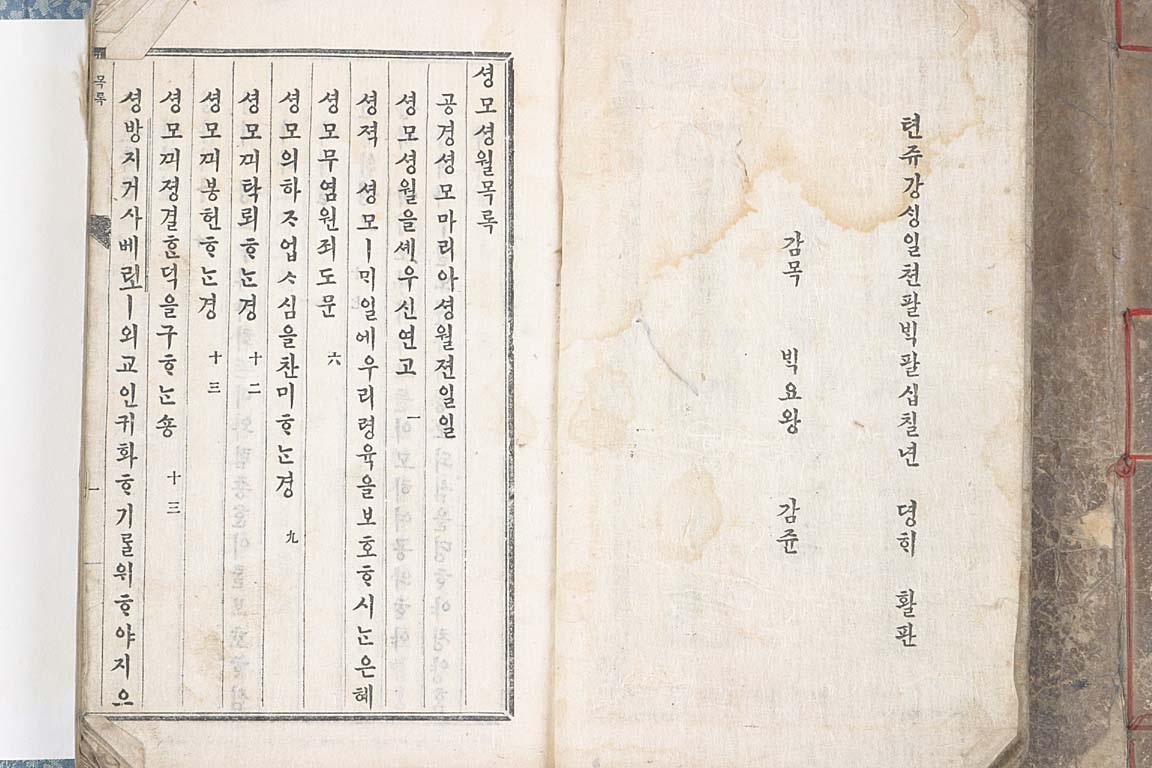 텬쥬강싱일쳔팔빅팔십칠년 뎡ᄒᆡ 활판
감목 빅요왕 감쥰
셩모셩월목록
공경셩모마리아셩월젼일일
셩모셩월을셰우신연고 一
셩젹 셩모ㅣ믹일에우리령육을보호ᄒᆞ시ᄂᆞᆫ은혜
셩모무염원죄도문 六
셩모의하ᄌᆞ업ᄉᆞ심을찬미ᄒᆞᄂᆞᆫ경 九
셩모ᄭᅴ탁뢰ᄒᆞᄂᆞᆫ경 十二
셩모ᄭᅴ봉헌ᄒᆞᄂᆞᆫ경 十三
셩모ᄭᅴ졍결ᄒᆞᆫ덕을구ᄒᆞᄂᆞᆫ숑 十三
셩방지거사베릭ㅣ외교인귀화ᄒᆞ기ᄅᆞᆯ위ᄒᆞ야지으
목록
一